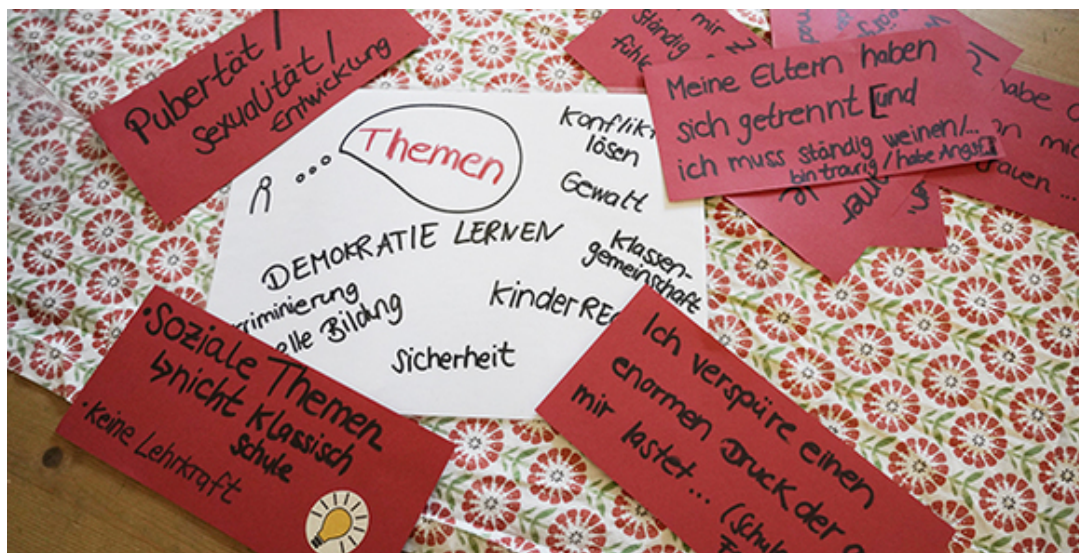 Pubertät /
Sexualität /
Entwicklung
Themen
Konflikt
lösen
Gewalt
DEMOKRATIE LERNEN
Klassen-
gemeinschaft
KinderRE
Sicherheit
Meine Eltern haben
sich getrennt [und
ich muss ständig weinen/...
bin traurig / habe Angst]
mir
ständig
fühle
habe
mic
rauen ...
• Soziale Themen
↳ nicht Klassisch
Schule
• Keine Lehrkraft
Ich verspüre einen
enormen Druck der
mir lastet... (Schu